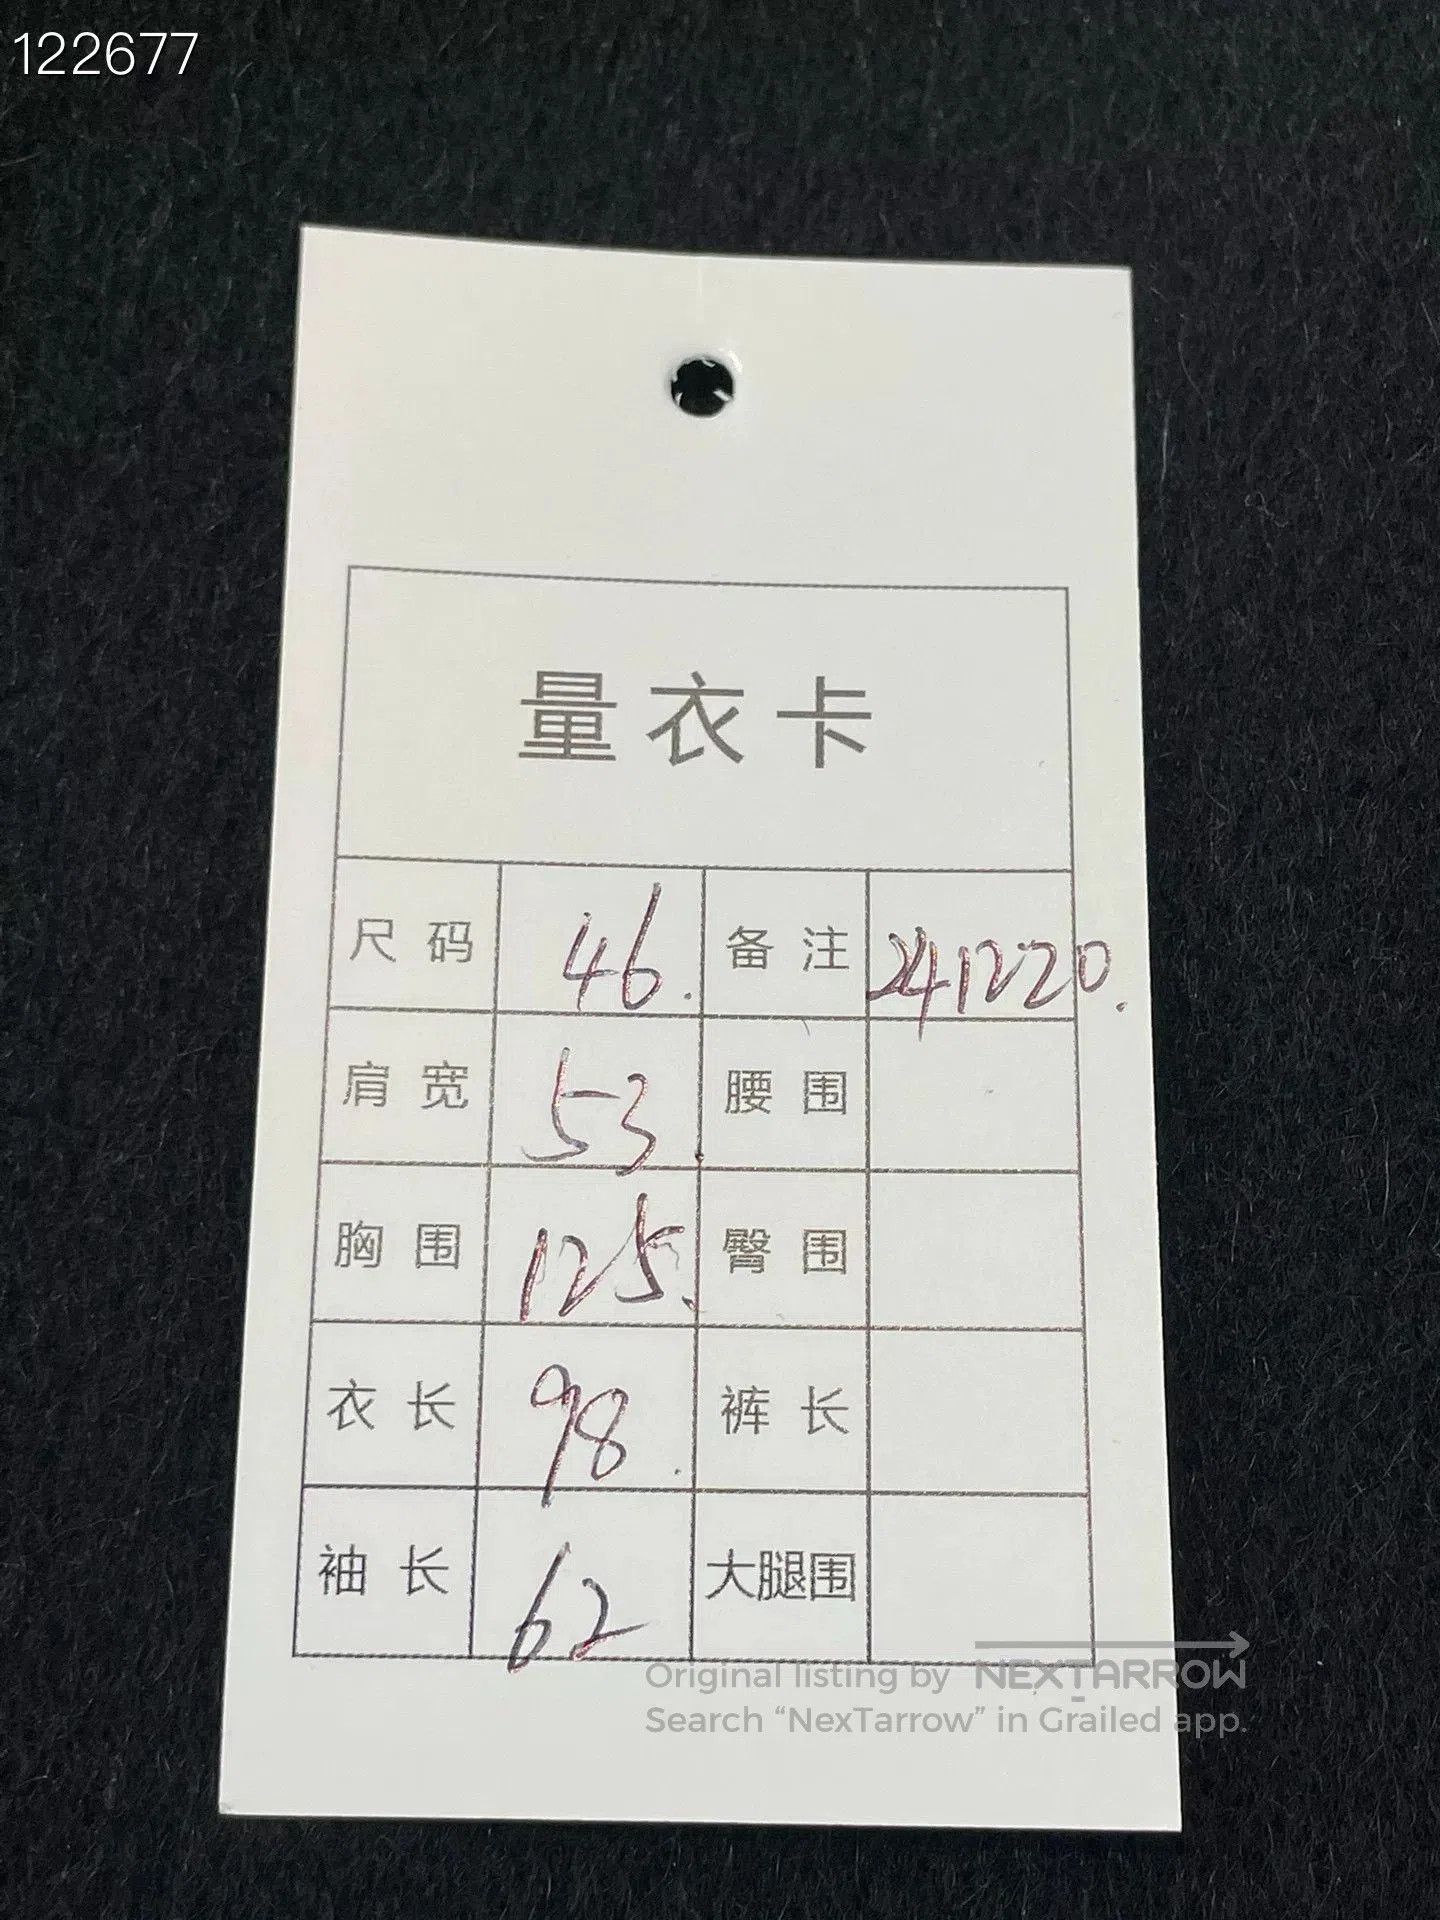 122677
量衣卡
尺码 46. 备注 241220.
肩宽 53 腰围
胸围 125. 臀围
衣长 98. 裤长
袖长 62 大腿围
Original listing by NEXTARROW
Search “NexTarrow” in Grailed app.